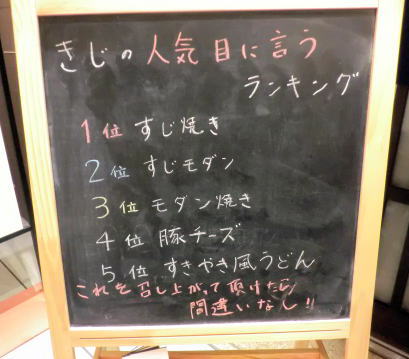 きじの人気目に言う
ランキング
1位 すじ焼き
2位 すじモダン
3位 モダン焼き
4位 豚チーズ
5位 すきやき風うどん
これを召し上がって頂けたら
間違いなし!!